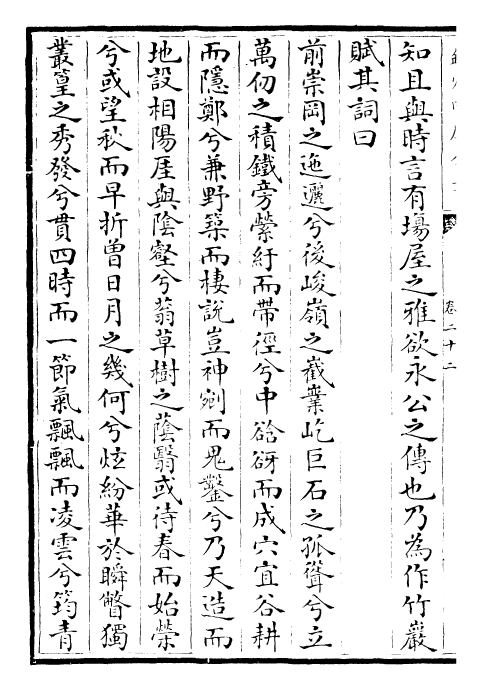 卷二十二
知且與時言有塲屋之雅欲永公之傳也乃為作竹巖
賦其詞曰
前崇岡之迤邐兮後峻嶺之嶻嶪屹巨石之孤聳兮立
萬仞之積鐵旁縈紆而帶徑兮中谽谺而成穴宜谷耕
而隱鄭兮兼野築而棲說豈神剜而鬼鑿兮乃天造而
地設相陽厓與陰壑兮蓊草樹之蔭翳或待春而始榮
兮或望秋而早折曾日月之幾何兮炫紛華於瞬瞥獨
叢篁之秀發兮貫四時而一節氣飄飄而凌雲兮筠青